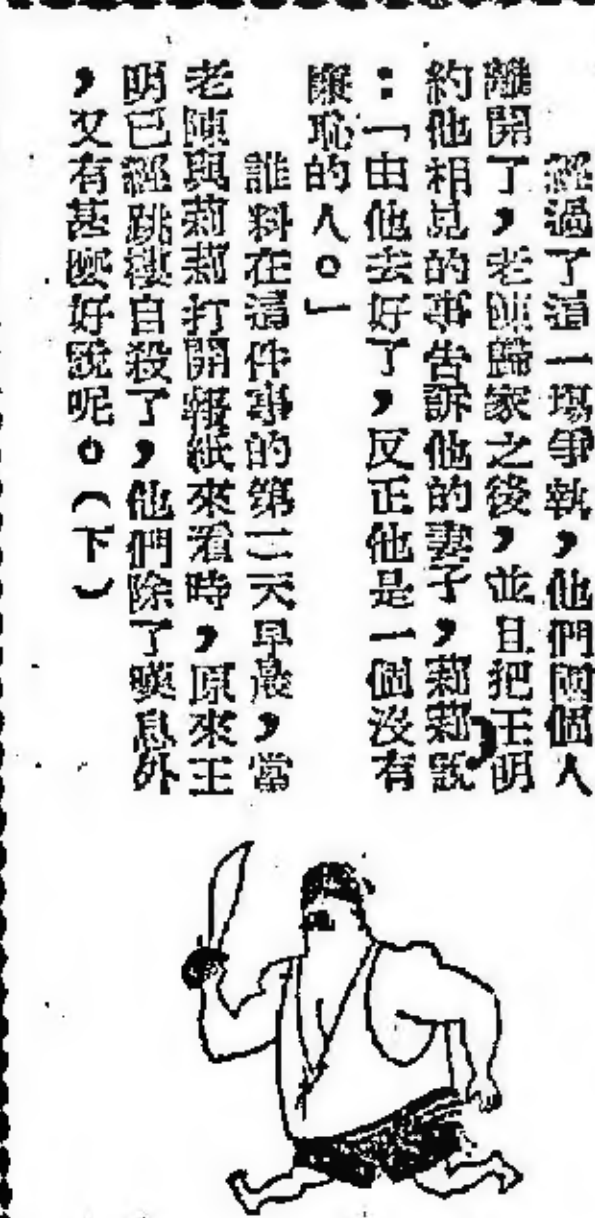 經過了這一塲爭執，他們兩個人
離開了，老陳歸家之後，並且把王明
約他相見的事告訴他的妻子，莉莉說
：「由他去好了，反正他是一個沒有
廉恥的人。」
誰料在這件事的第二天早晨，當
老陳與莉莉打開報紙來看時，原來王
明已經跳樓自殺了，他們除了嘆息外
，又有甚麼好說呢。（下）